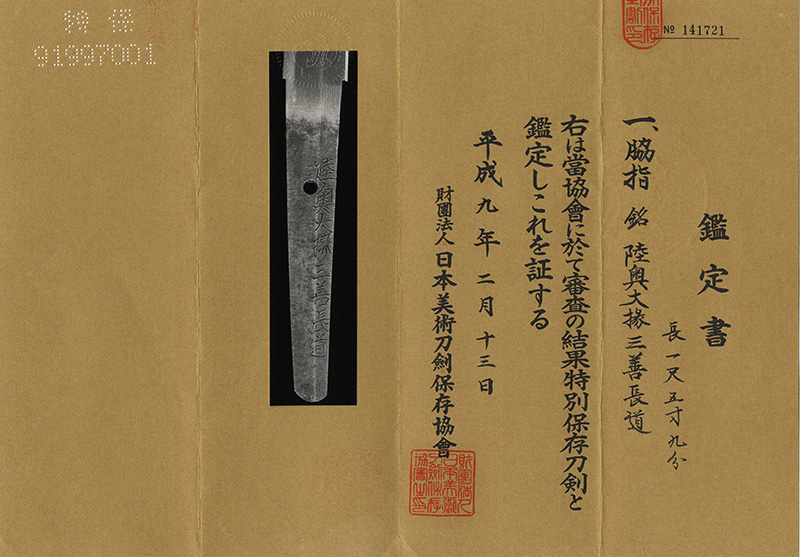 鑑定書
一、脇指 銘 陸奥大掾三善長道
長一尺五寸九分
右は當協會に於て審査の結果特別保存刀剣と
鑑定しこれを証する
平成九年二月十三日
財團法人日本美術刀劍保存協會
№ 141721
陸奥大掾三善長道
特保
91997001